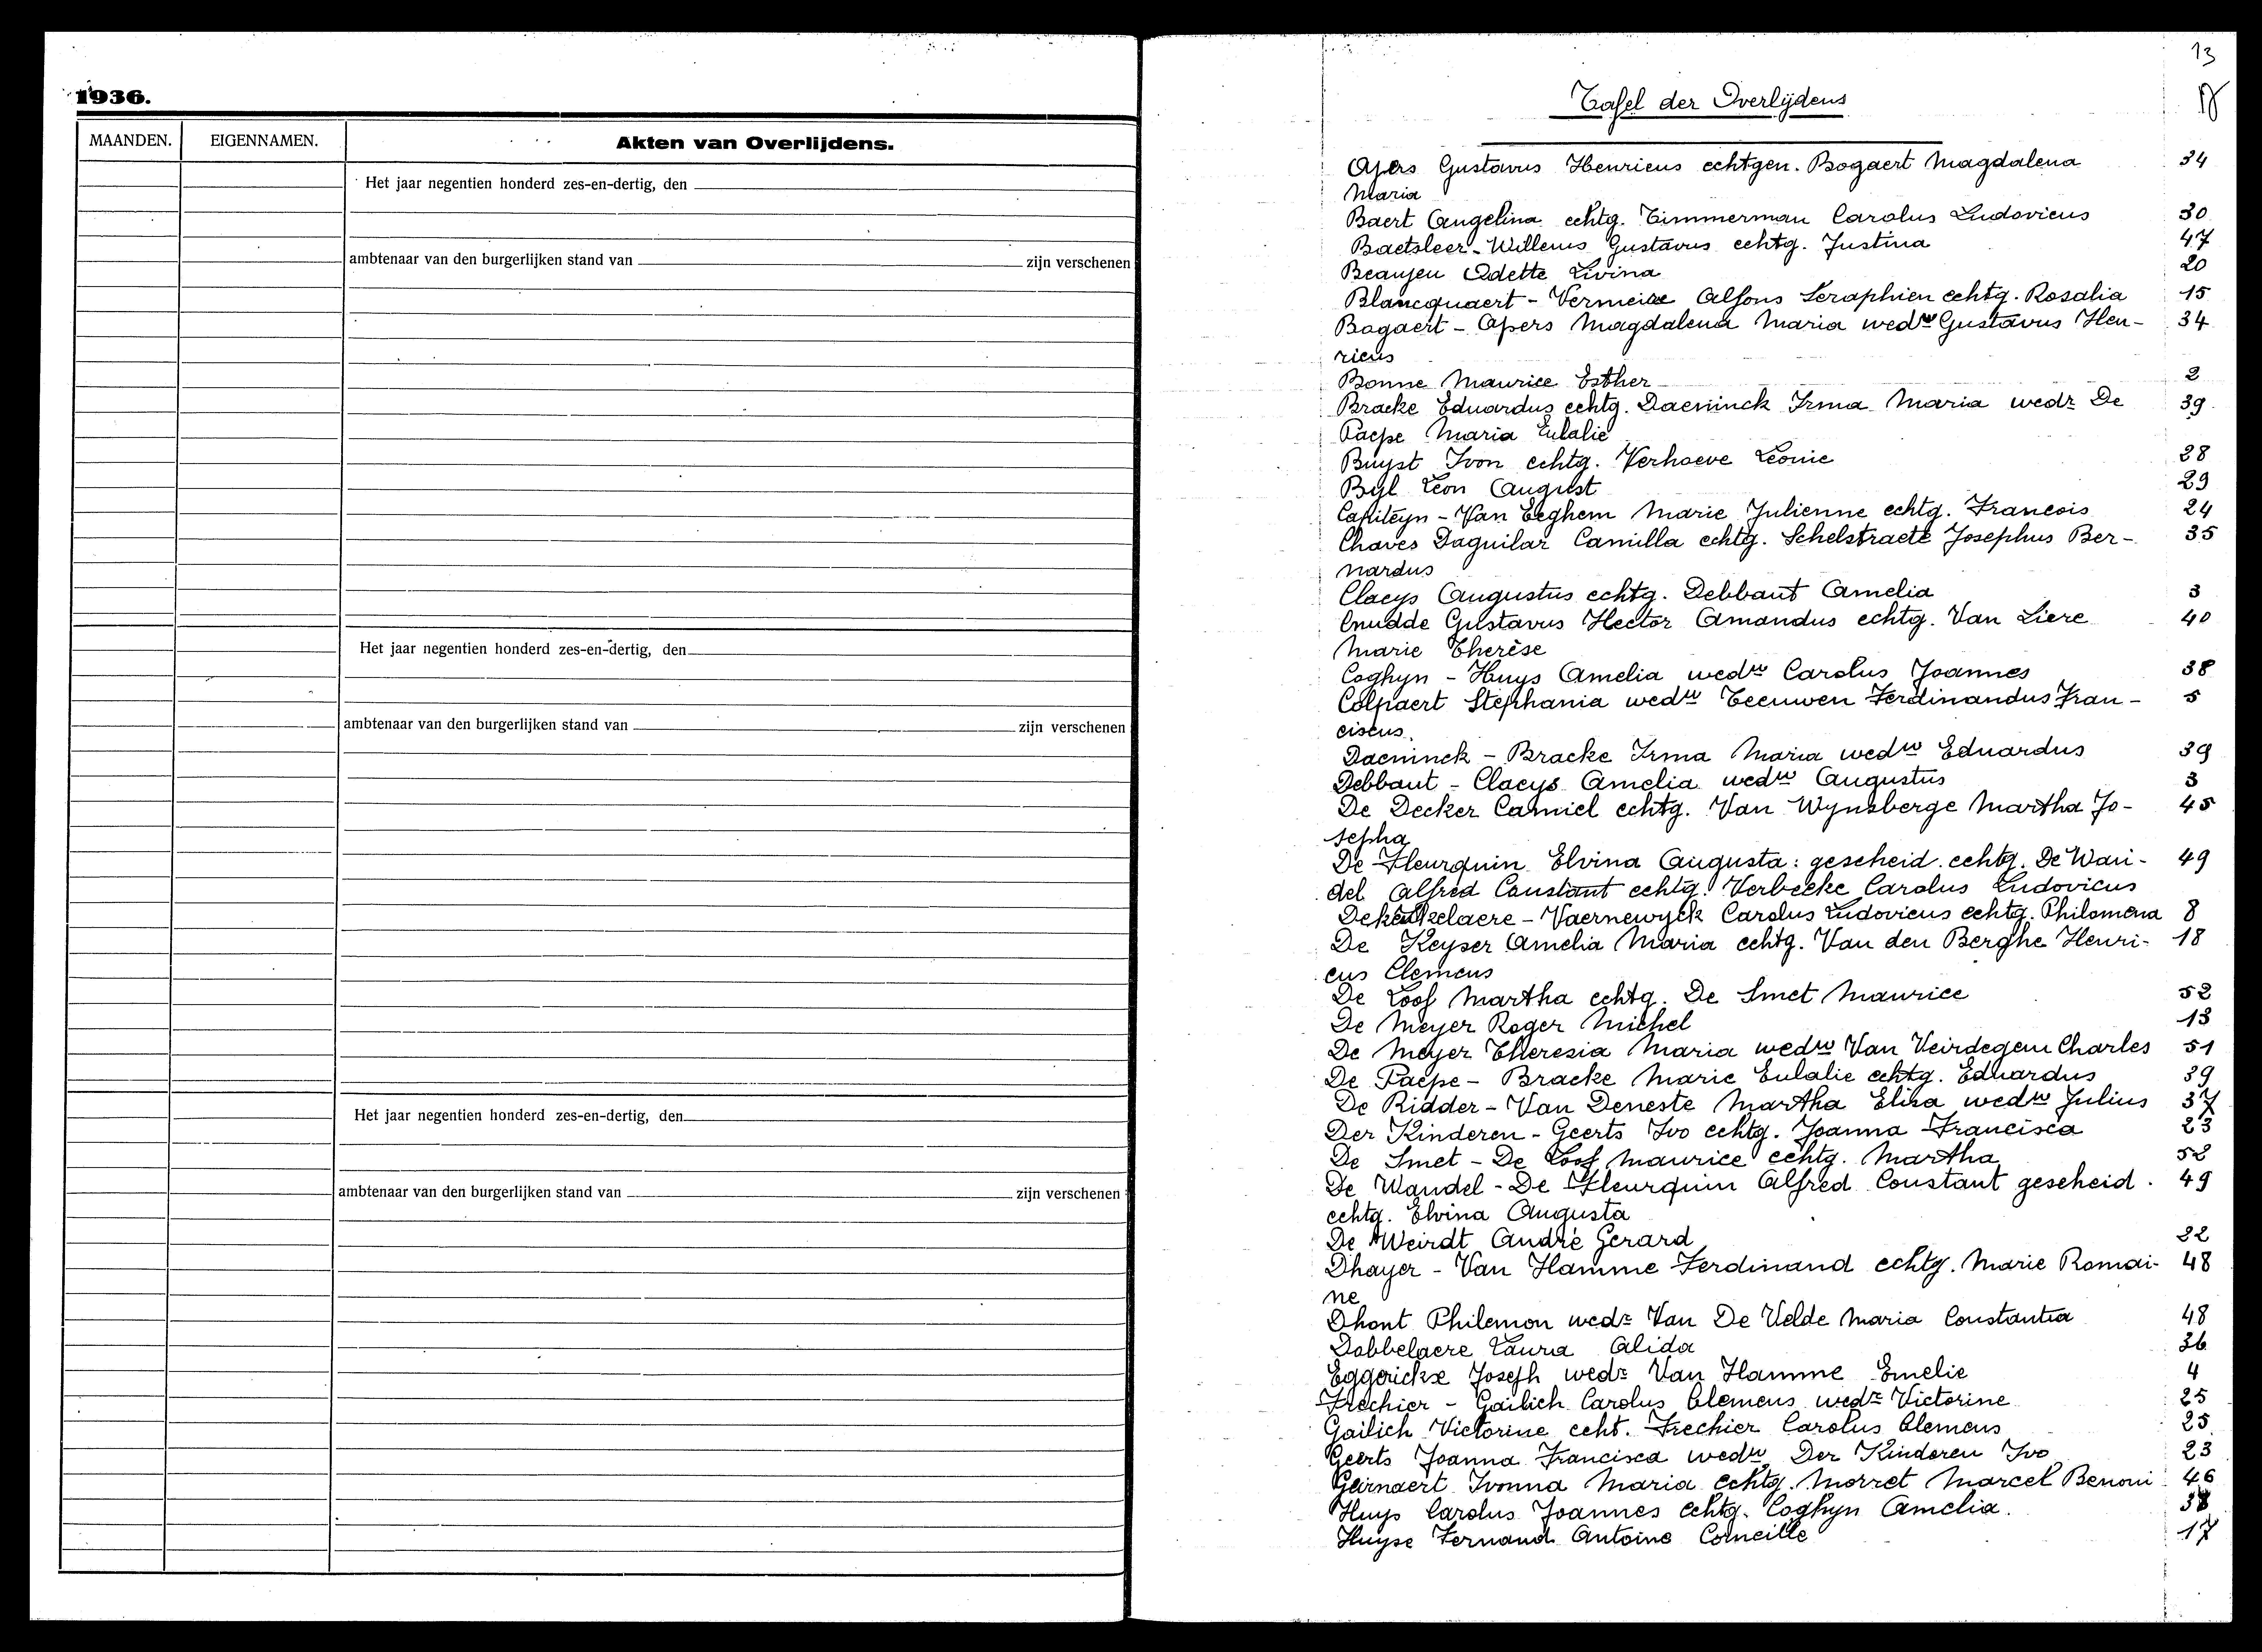 1936.
MAANDEN. EIGENNAMEN. Akten van Overlijdens.
Het jaar negentien honderd zes-en-dertig, den
ambtenaar van den burgerlijken stand van zijn verschenen
Het jaar negentien honderd zes-en-dertig, den
ambtenaar van den burgerlijken stand van zijn verschenen
Het jaar negentien honderd zes-en-dertig, den
ambtenaar van den burgerlijken stand van zijn verschenen
13
Tafel der Overlijdens
Apers Gustavus Henricus echtgen. Bogaert Magdalena 34
Maria
Baert Angelina echtg. Timmerman Carolus Ludovicus 30
Baetsleer-Willems Gustavus echtg. Justina 47
Beaujeu Odette Livina 20
Blancquaert - Vermeire Alfons Seraphien echtg. Rosalia 15
Bogaert - Apers Magdalena Maria wedw Gustavus Hen- 34
ricus
Bonne Maurice Esther 2
Bracke Eduardus echtg. Daeninck Irma Maria wedr De 39
Paepe Maria Eulalie
Buyst Ivon echtg. Verhoeve Leonie 28
Byl Leon August 29
Capiteyn - Van Eeghem Marie Julienne echtg. Francois 24
Chaves Daguilar Camilla echtg. Schelstraete Josephus Ber- 35
nardus
Claeys Augustus echtg. Debbaut Amelia 3
Cnudde Gustavus Hector Amandus echtg. Van Liere 40
Marie Therèse
Coghyn - Huys Amelia wedw Carolus Joannes 38
Colpaert Stephania wedw Teeuwen Ferdinandus Fran- 5
ciscus.
Daeninck - Bracke Irma Maria wedw Eduardus 39
Debbaut - Claeys Amelia wedw Augustus 3
De Decker Camiel echtg. Van Wynsberge Martha Jo- 45
sepha
De Fleurquin Elvina Augusta: gescheid. echtg. De Wan- 49
del Alfred Constant echtg. Verbeeke Carolus Ludovicus
Dekeukelaere - Vaernewyck Carolus Ludovicus echtg. Philomena 8
De Keyser Amelia Maria echtg. Van den Berghe Henri- 18
cus Clemens
De Loof Martha echtg. De Smet Maurice 52
De Meyer Roger Michel 13
De Meyer Theresia Maria wedw Van Veirdegem Charles 51
De Paepe - Bracke Marie Eulalie echtg. Eduardus 39
De Ridder - Van Deneste Martha Elisa wedw Julius 37
Der Kinderen - Geerts Ivo echtg. Joanna Francisca 23
De Smet - De Loof Maurice echtg. Martha 52
De Wandel - De Fleurquin Alfred Constant gescheid. 49
echtg. Elvina Augusta
De Weirdt André Gerard 22
Dhayer - Van Hamme Ferdinand echtg. Marie Romai- 48
ne
Dhont Philemon wedr Van De Velde Maria Constantia 48
Dobbelaere Laura Alida 36
Eggerickx Joseph wedr Van Hamme Emelie 4
Frechier - Gailich Carolus Clemens wedr Victorine 25
Gailich Victorine echt. Frechier Carolus Clemens 25
Geerts Joanna Francisca wedw Der Kinderen Ivo 23
Geirnaert Ivonna Maria echtg. Morret Marcel Benoni 46
Huys Carolus Joannes echtg. Coghyn Amelia. 38
Huyse Fernand Antoine Corneille 17